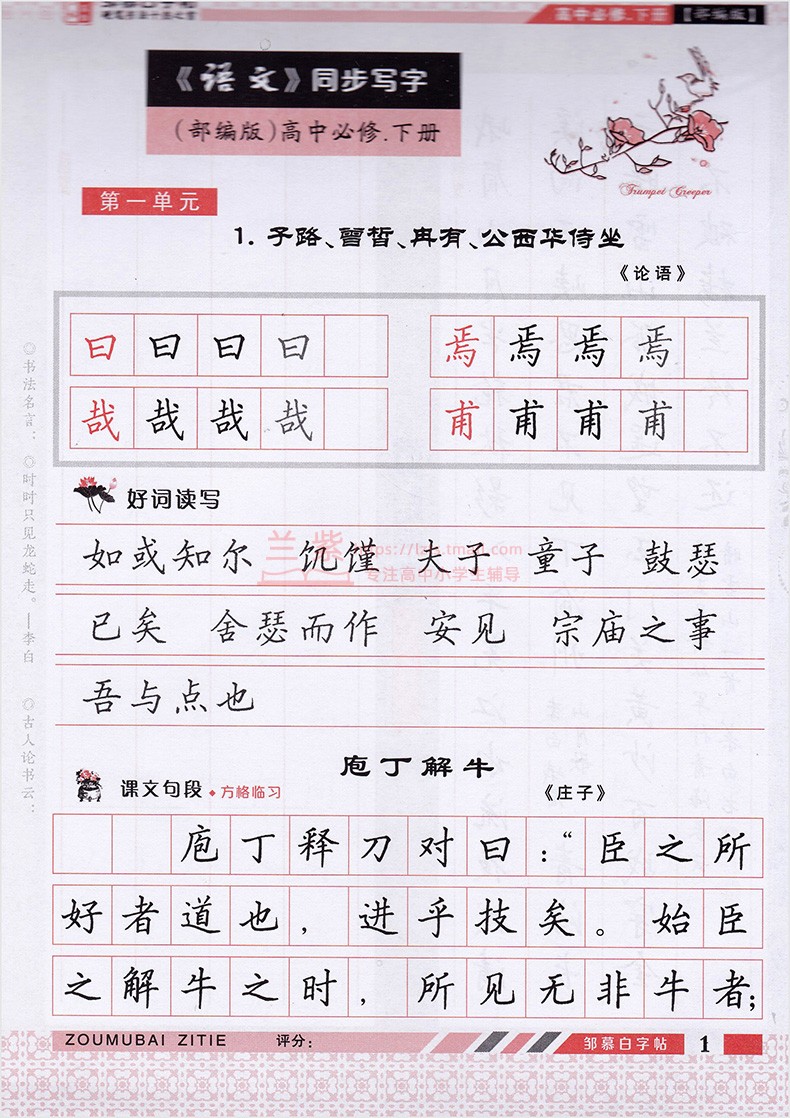 高中必修.下册【部编版】
《语文》同步写字
(部编版)高中必修.下册
Trumpet Creeper
第一单元
1. 子路、曾皙、冉有、公西华侍坐
《论语》
曰曰曰曰 焉焉焉焉
哉哉哉哉 甫甫甫甫
好词读写
如或知尔 饥馑 夫子 童子 鼓瑟
兰紫
专注高中小学生辅导
已矣 舍瑟而作 安见 宗庙之事
吾与点也
◎书法名言: ◎时时只见龙蛇走。—李白 ◎古人论书云:
庖丁解牛
课文句段 方格临习
《庄子》
庖丁释刀对曰:“臣之所
好者道也,进乎技矣。始臣
之解牛之时,所见无非牛者;
ZOUMUBAI ZITIE 评分: 邹慕白字帖 1